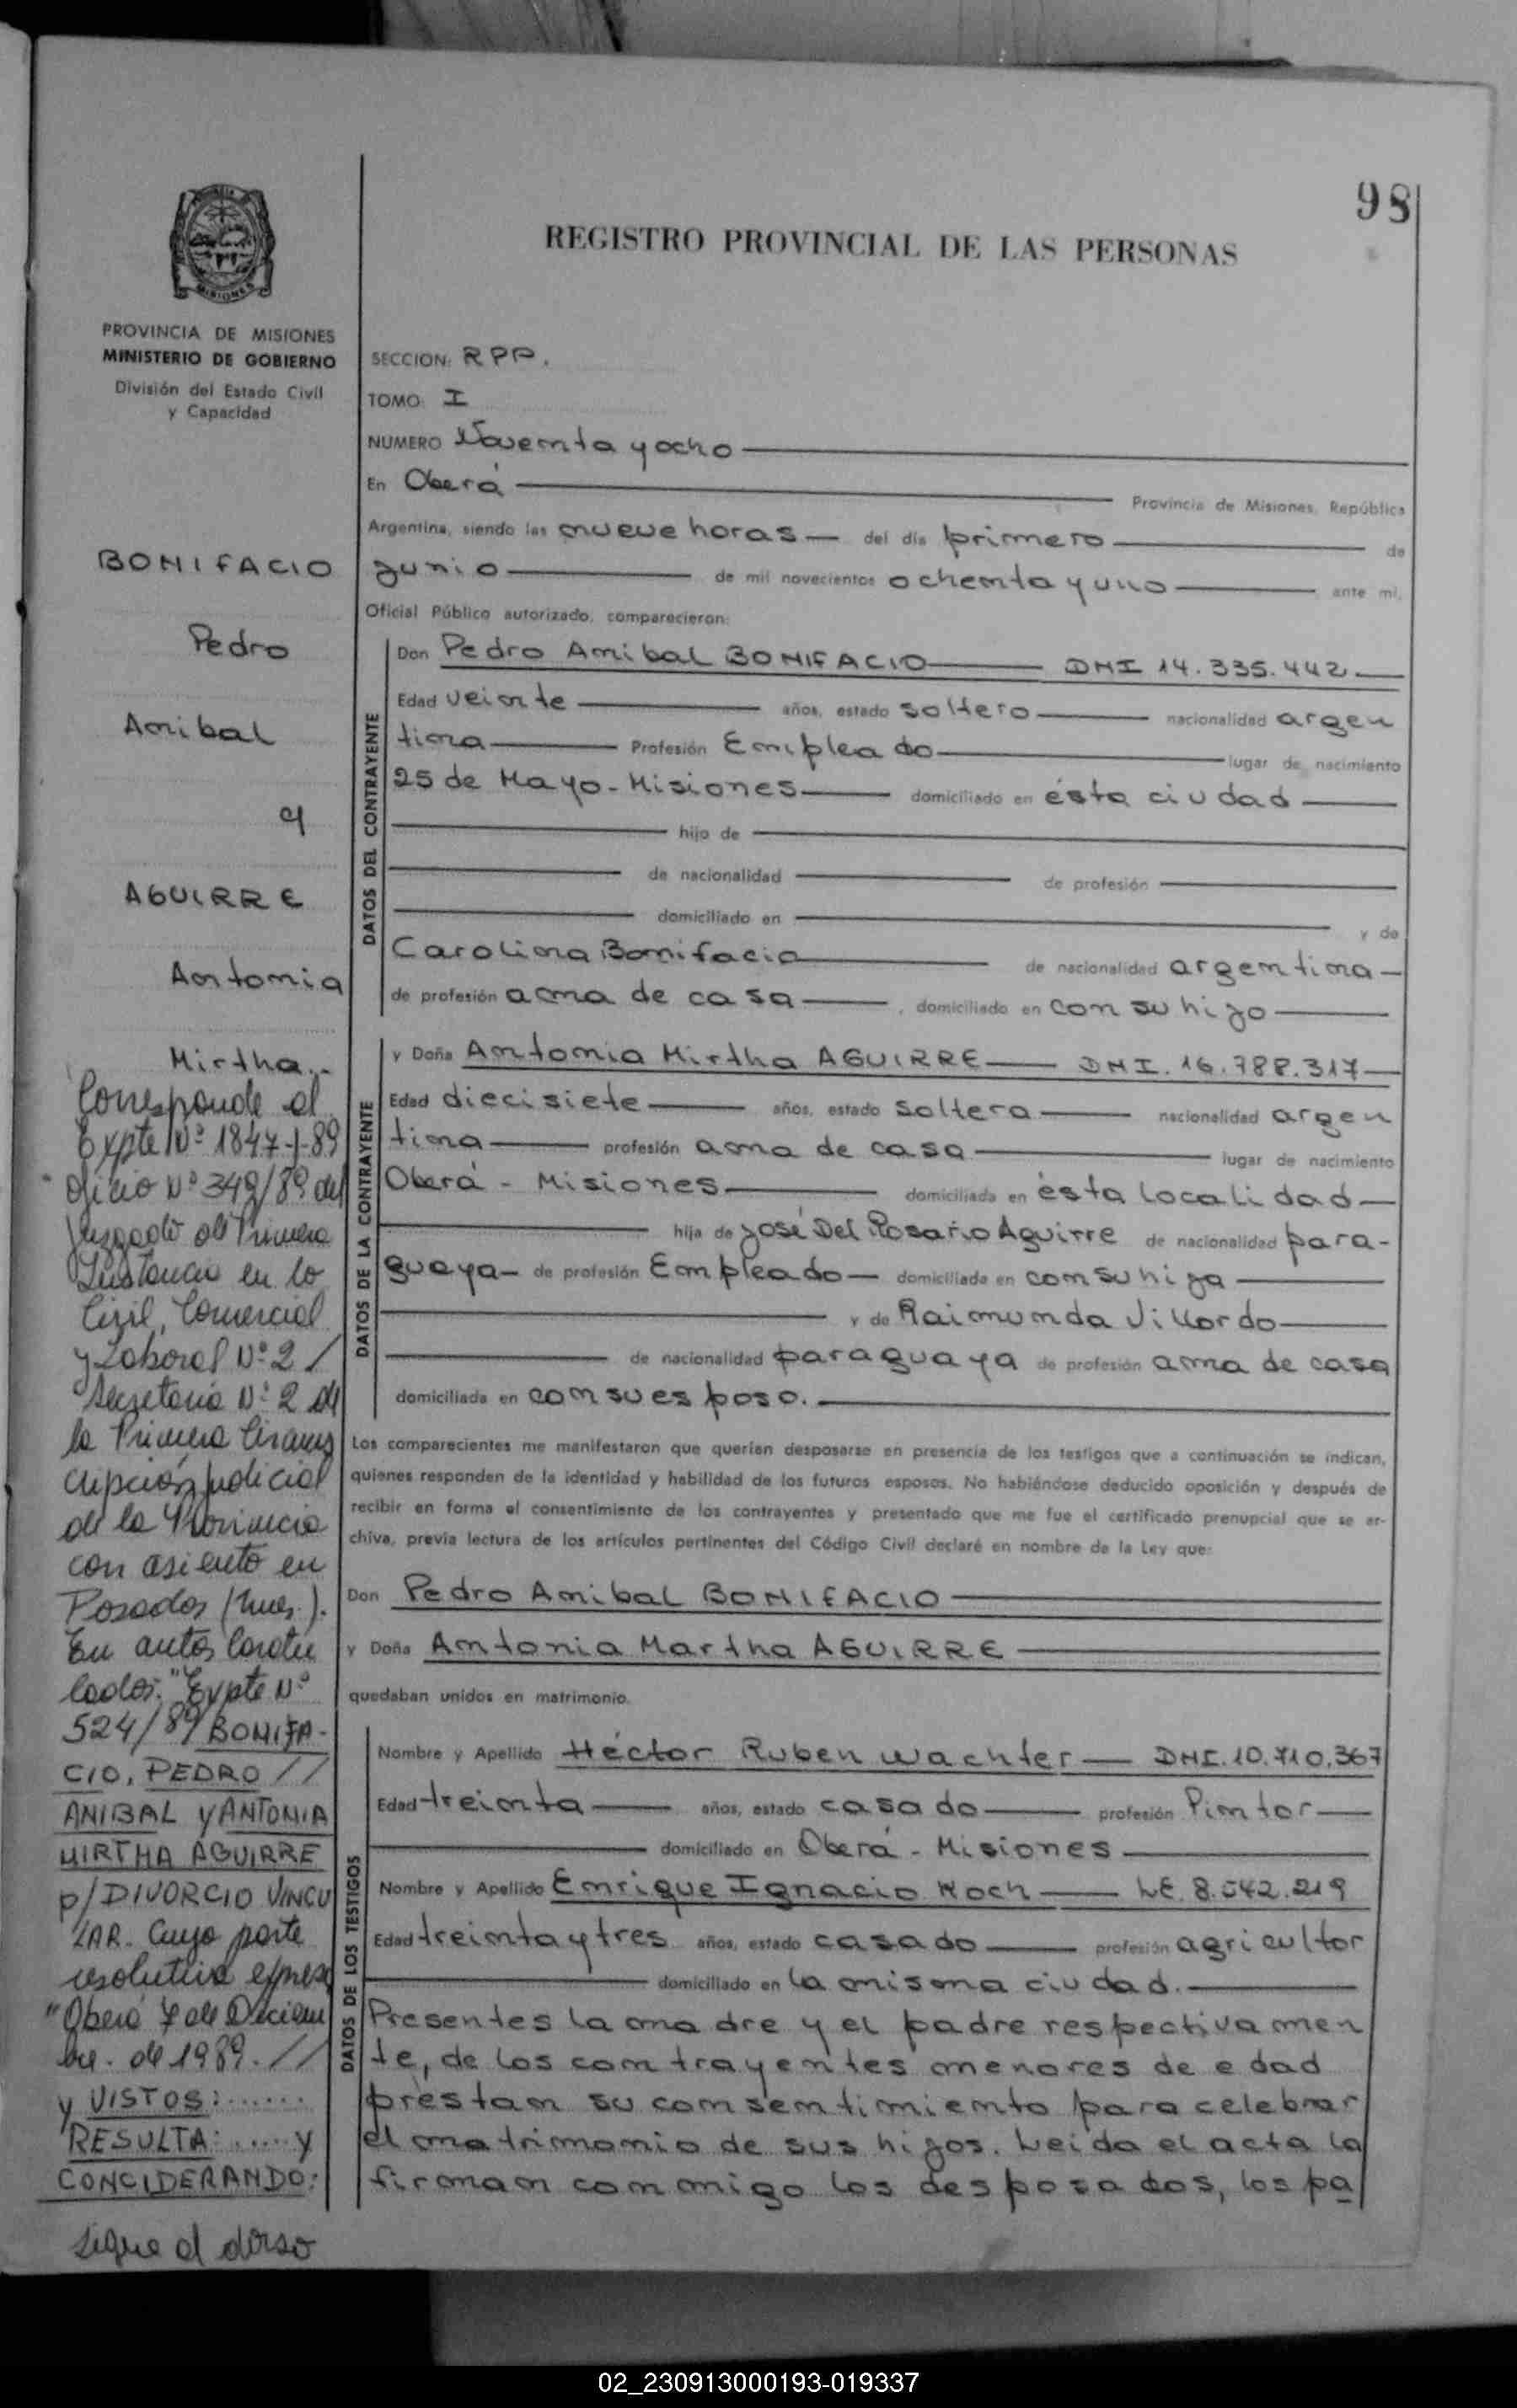 98
REGISTRO PROVINCIAL DE LAS PERSONAS
MISIONES
PROVINCIA DE MISIONES
MINISTERIO DE GOBIERNO
División del Estado Civil
y Capacidad
BONIFACIO
Pedro
Anibal
y
AGUIRRE
Antonia
Mirtha..
Corresponde al
Expte Nº 1847-J-89
Oficio Nº 349/89 del
Juzgado de Primera
Instancia en lo
Civil, Comercial
y Laboral Nº 2 /
Secretaria Nº 2 de
la Primera Circuns
cripción judicial
de la Provincia
con asiento en
Posadas (Mnes.).
En autos caratu
lados: "Expte Nº
524/89 BONIFA-
CIO, PEDRO //
ANIBAL y ANTONIA
MIRTHA AGUIRRE
p/ DIVORCIO VINCU
LAR. Cuya parte
resolutiva expresa
"Oberá 7 de Diciem
bre. de 1989. //
y VISTOS:......
RESULTA:.....y
CONCIDERANDO:
sigue al dorso
SECCION: RPP.
TOMO: I
NUMERO Noventa y ocho
En Oberá Provincia de Misiones, República
Argentina, siendo las nueve horas del día primero de
junio de mil novecientos ochenta y uno ante mi,
Oficial Público autorizado, comparecieron:
DATOS DEL CONTRAYENTE
Don Pedro Anibal BONIFACIO DNI 14.335.442
Edad veinte años, estado soltero nacionalidad argen
tina Profesión Empleado lugar de nacimiento
25 de Mayo - Misiones domiciliado en ésta ciudad
hijo de
de nacionalidad de profesión
domiciliado en y de
Carolina Bonifacio de nacionalidad argentina
de profesión ama de casa, domiciliado en con su hijo
DATOS DE LA CONTRAYENTE
y Doña Antonia Mirtha AGUIRRE DNI. 16.788.317
Edad diecisiete años, estado soltera nacionalidad argen
tina profesión ama de casa lugar de nacimiento
Oberá - Misiones domiciliada en ésta localidad
hija de José Del Rosario Aguirre de nacionalidad para-
guaya de profesión Empleado domiciliada en con su hija
y de Raimunda Villordo
de nacionalidad paraguaya de profesión ama de casa
domiciliada en con su esposo.
Los comparecientes me manifestaron que querían desposarse en presencia de los testigos que a continuación se indican,
quienes responden de la identidad y habilidad de los futuros esposos. No habiéndose deducido oposición y después de
recibir en forma el consentimiento de los contrayentes y presentado que me fue el certificado prenupcial que se ar-
chiva, previa lectura de los artículos pertinentes del Código Civil declaré en nombre de la Ley que:
Don Pedro Anibal BONIFACIO
y Doña Antonia Martha AGUIRRE
quedaban unidos en matrimonio.
DATOS DE LOS TESTIGOS
Nombre y Apellido Héctor Ruben Wachter DNI. 10.710.367
Edad treinta años, estado casado profesión Pintor
domiciliado en Oberá - Misiones
Nombre y Apellido Enrique Ignacio Koch LE. 8.542.219
Edad treinta y tres años, estado casado profesión agricultor
domiciliado en la misma ciudad.
Presentes la madre y el padre respectivamen
te, de los contrayentes menores de edad
prestan su consentimiento para celebrar
el matrimonio de sus hijos. Leida el acta la
firman conmigo los desposados, los pa
02_230913000193-019337